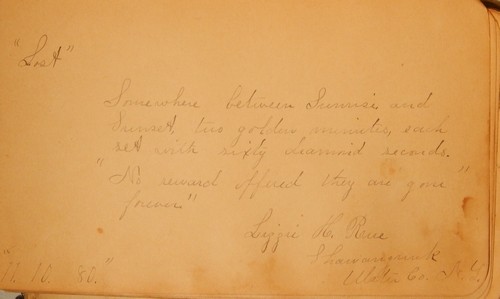 "Lost"
Somewhere between Sunrise and
Sunset, two golden minutes, each
set with sixty diamond seconds.
"No reward offered they are gone
forever"
Lizzie H. Rue
Shawangunk
Ulster Co. N.Y.